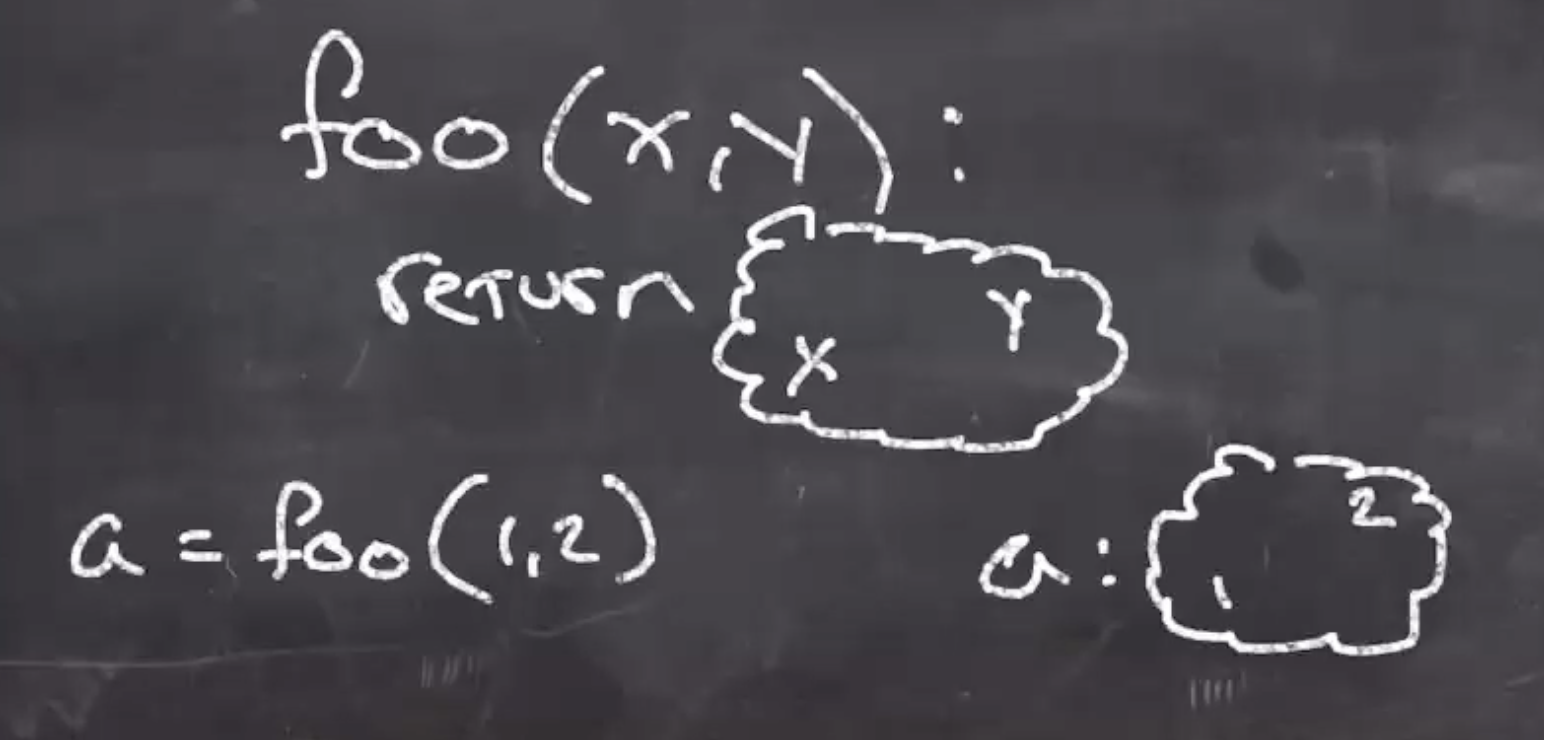 foo(x,y):
return
x y
a = foo(1,2)
a: 1 2